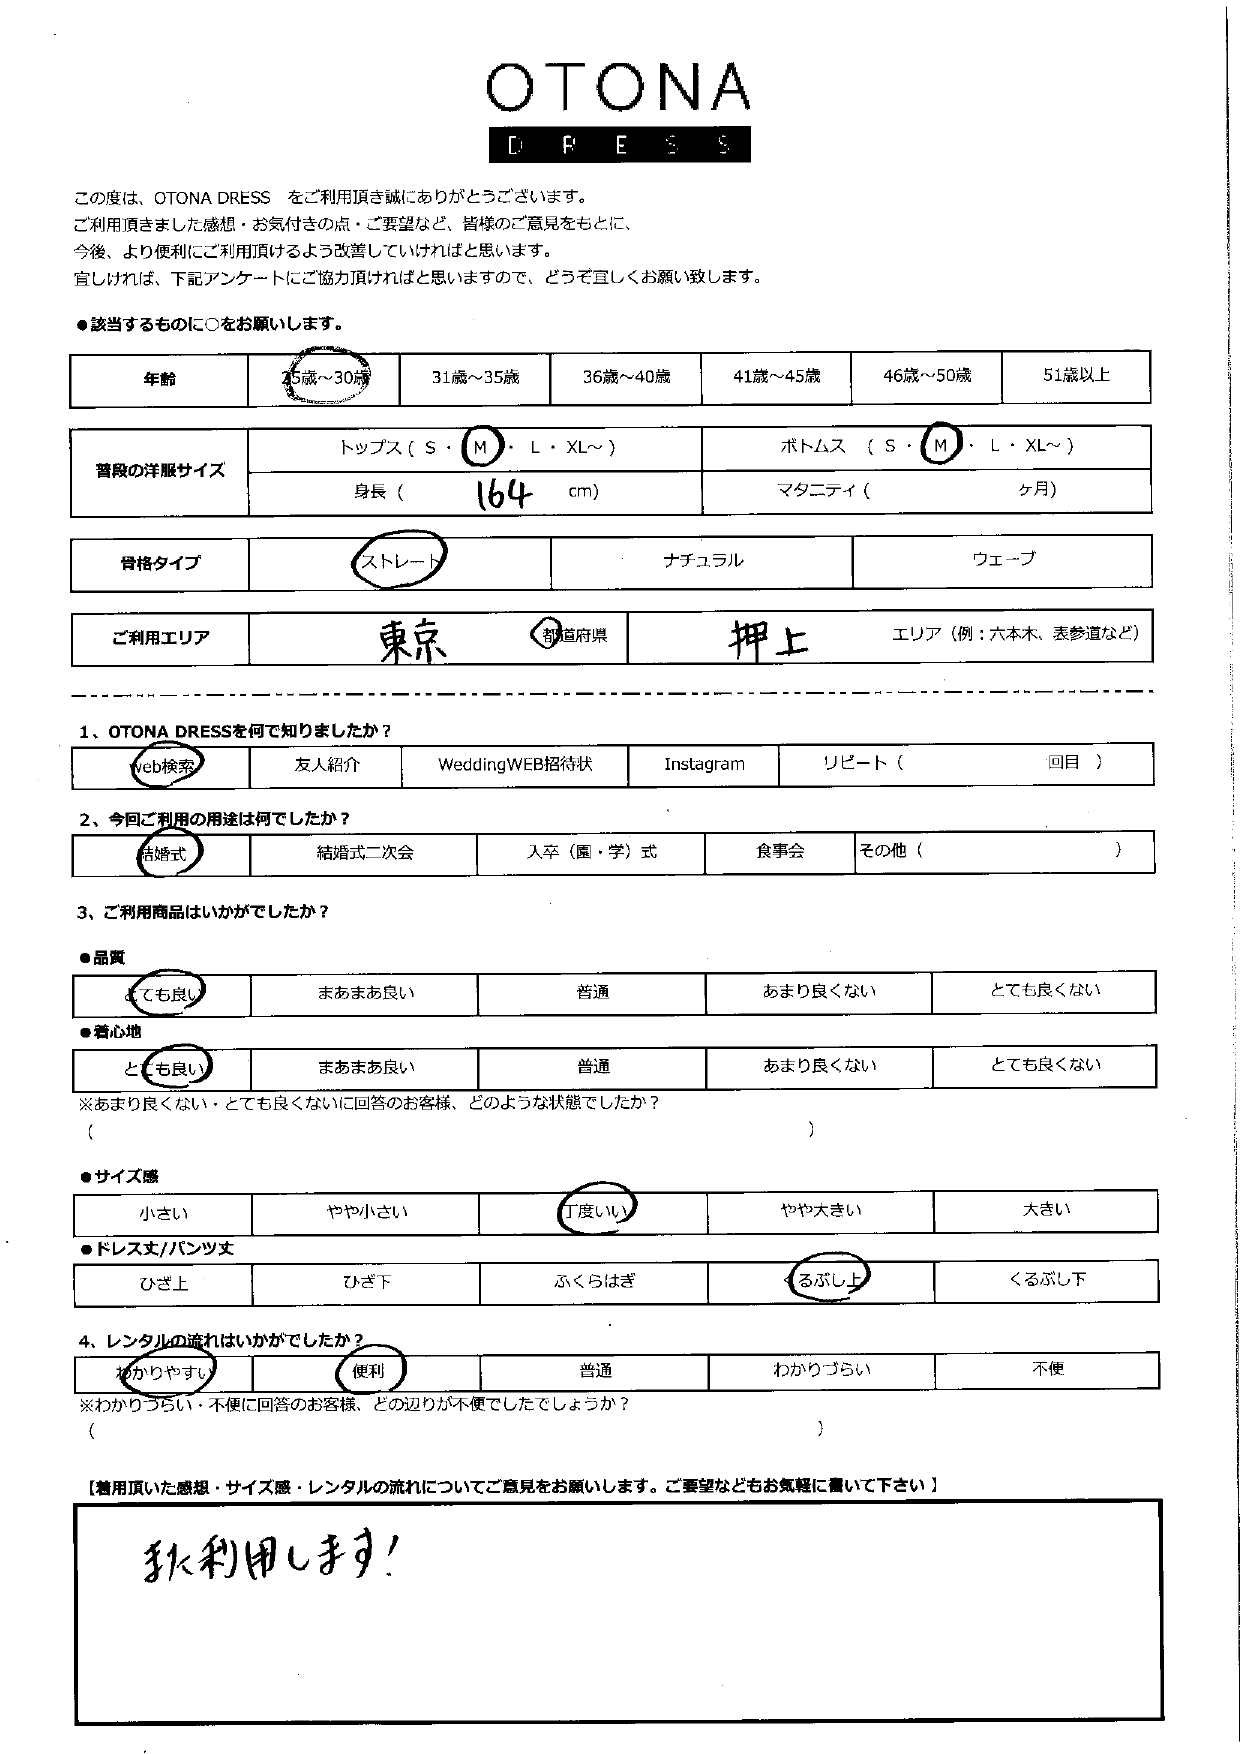 OTONA
DRESS
この度は、OTONA DRESS をご利用頂き誠にありがとうございます。
ご利用頂きました感想・お気付きの点・ご要望など、皆様のご意見をもとに、
今後、より便利にご利用頂けるよう改善していければと思います。
宜しければ、下記アンケートにご協力頂ければと思いますので、どうぞ宜しくお願い致します。
●該当するものに○をお願いします。
年齢 25歳～30歳 31歳～35歳 36歳～40歳 41歳～45歳 46歳～50歳 51歳以上
普段の洋服サイズ トップス ( S ・ M ・ L ・ XL～ ) ボトムス ( S ・ M ・ L ・ XL～ )
身長 ( 164 cm) マタニティ ( ヶ月)
骨格タイプ ストレート ナチュラル ウェーブ
ご利用エリア 東京 都道府県 押上 エリア（例：六本木、表参道など）
1、OTONA DRESSを何で知りましたか？
web検索 友人紹介 WeddingWEB招待状 Instagram リピート（ 回目 ）
2、今回ご利用の用途は何でしたか？
結婚式 結婚式二次会 入卒（園・学）式 食事会 その他（ ）
3、ご利用商品はいかがでしたか？
●品質
とても良い まあまあ良い 普通 あまり良くない とても良くない
●着心地
とても良い まあまあ良い 普通 あまり良くない とても良くない
※あまり良くない・とても良くないに回答のお客様、どのような状態でしたか？
( )
●サイズ感
小さい やや小さい 丁度いい やや大きい 大きい
●ドレス丈/パンツ丈
ひざ上 ひざ下 ふくらはぎ くるぶし上 くるぶし下
4、レンタルの流れはいかがでしたか？
わかりやすい 便利 普通 わかりづらい 不便
※わかりづらい・不便に回答のお客様、どの辺りが不便でしたでしょうか？
( )
【着用頂いた感想・サイズ感・レンタルの流れについてご意見をお願いします。ご要望などもお気軽に書いて下さい 】
また利用します!